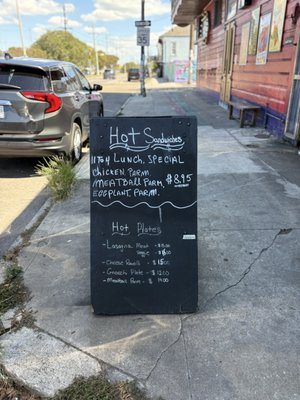 Hot Sandwiches
11 to 4 Lunch Special
Chicken Parm
Meatball Parm $8.95
Eggplant Parm.
Hot Plates
- Lasagna Meat -
Veggie
- Cheese Ravioli -
- Gnocchi Plate - $12.00
- Meatball Parm - $14.00